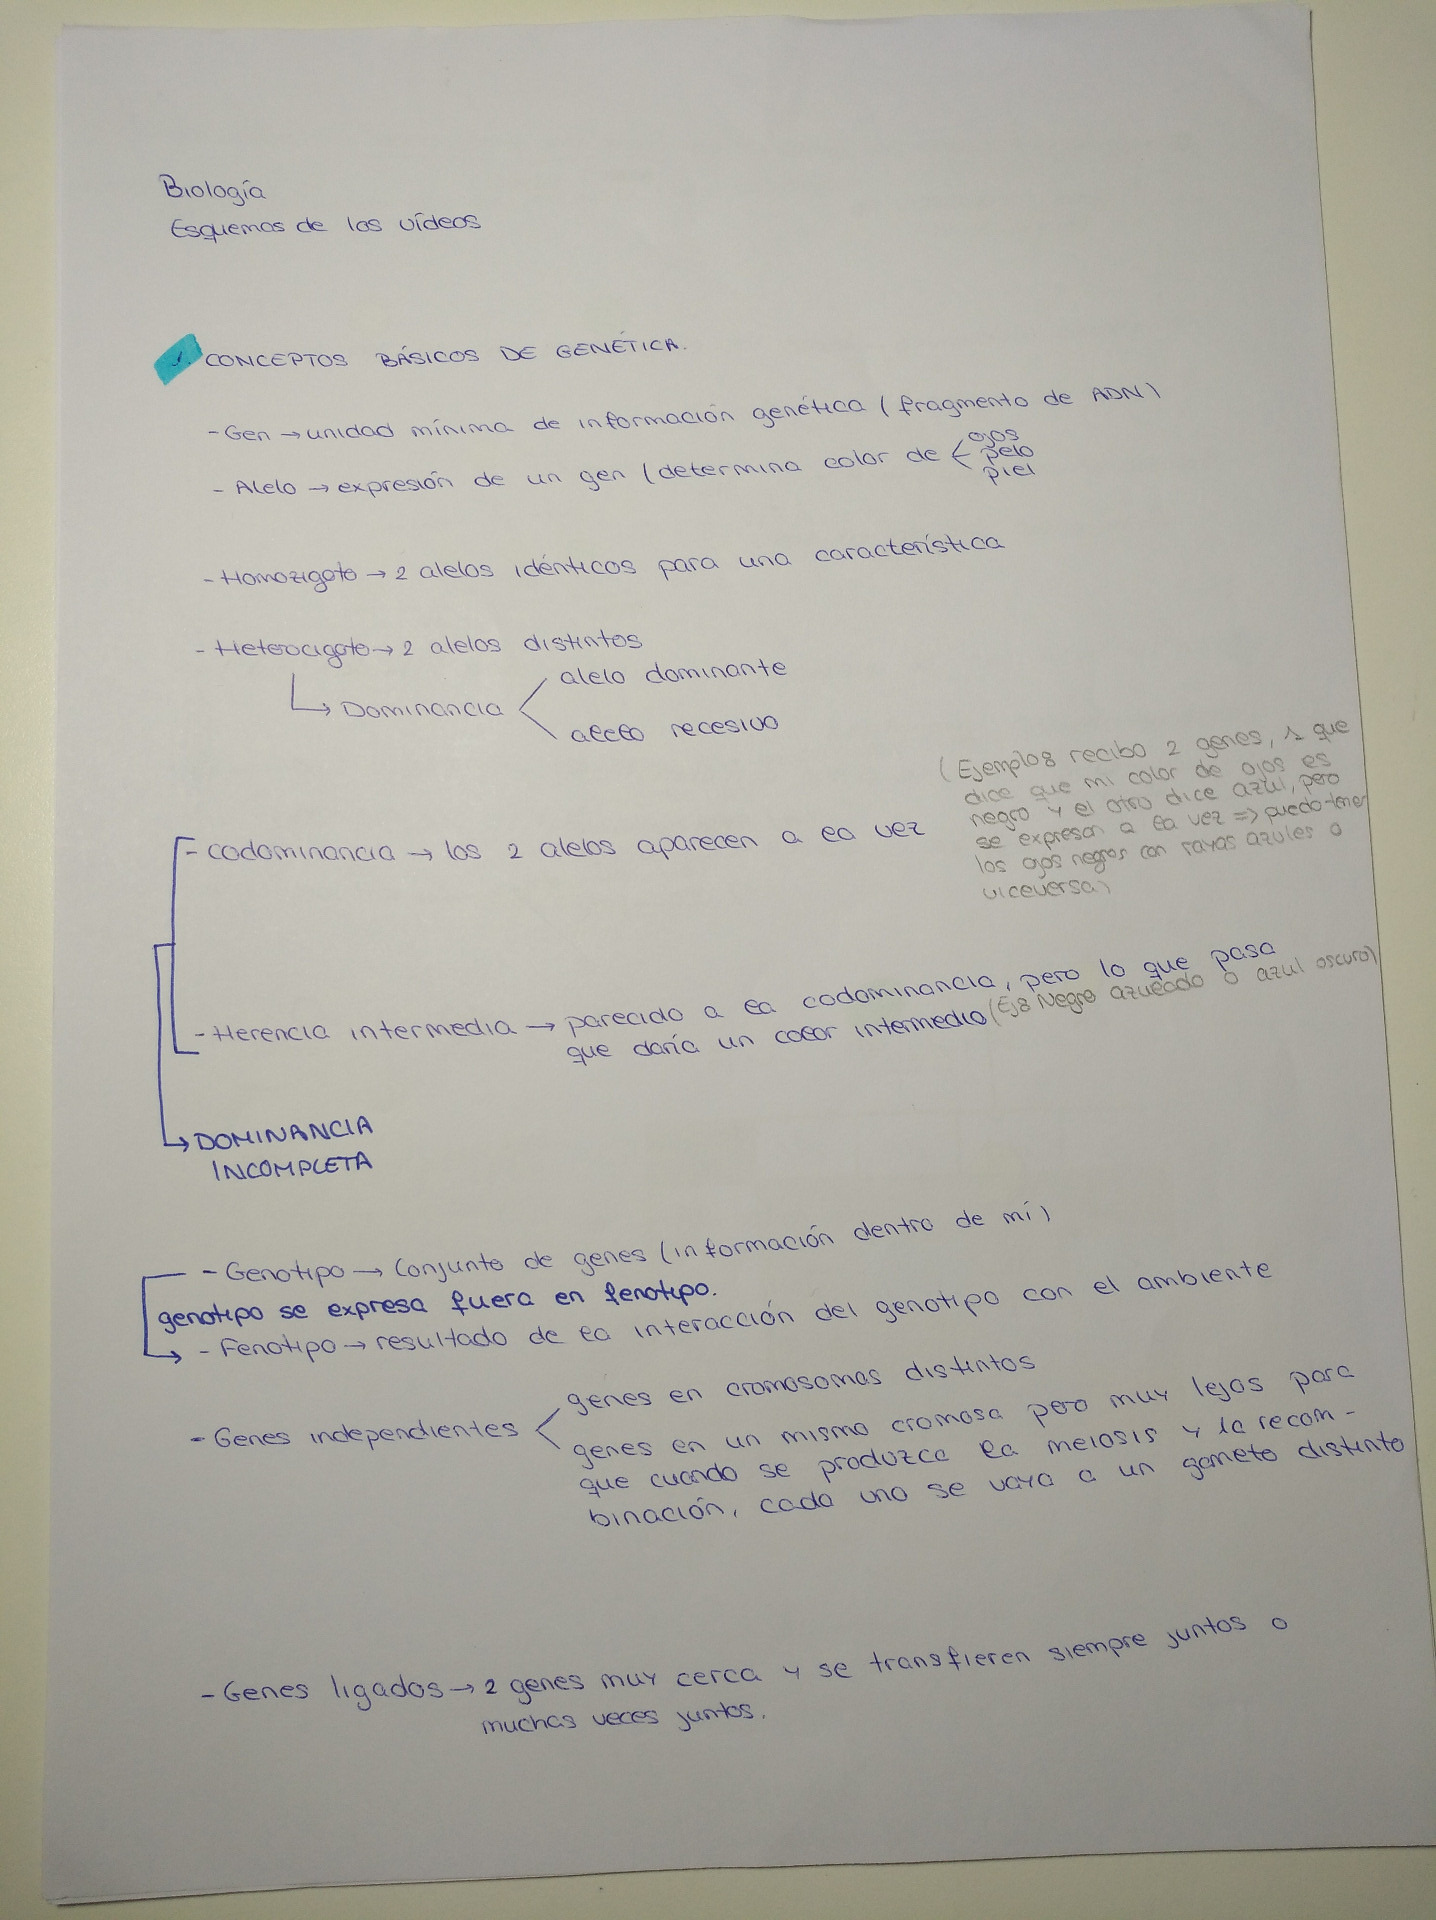 Biología
Esquemas de los vídeos
1. CONCEPTOS BÁSICOS DE GENÉTICA.
- Gen → unidad mínima de información genética (fragmento de ADN)
- Alelo → expresión de un gen (determina color de < ojos
pelo
piel
- Homozigoto → 2 alelos idénticos para una característica
- Heterocigoto → 2 alelos distintos
↳ Dominancia < alelo dominante
alelo recesivo
(Ejemplo: recibo 2 genes, 1 que
dice que mi color de ojos es
negro y el otro dice azul, pero
se expresan a la vez => puedo tener
los ojos negros con rayas azules o
viceversa)
- codominancia → los 2 alelos aparecen a la vez
- Herencia intermedia → parecido a la codominancia, pero lo que pasa
que daría un color intermedio (Ej: Negro azulado o azul oscuro)
→ DOMINANCIA
INCOMPLETA
- Genotipo → Conjunto de genes (información dentro de mí)
genotipo se expresa fuera en fenotipo.
→ - Fenotipo → resultado de la interacción del genotipo con el ambiente
- Genes independientes < genes en cromosomas distintos
genes en un mismo cromosa pero muy lejos para
que cuando se produzca la meiosis y la recom-
binación, cada uno se vaya a un gameto distinto
- Genes ligados → 2 genes muy cerca y se transfieren siempre juntos o
muchas veces juntos.